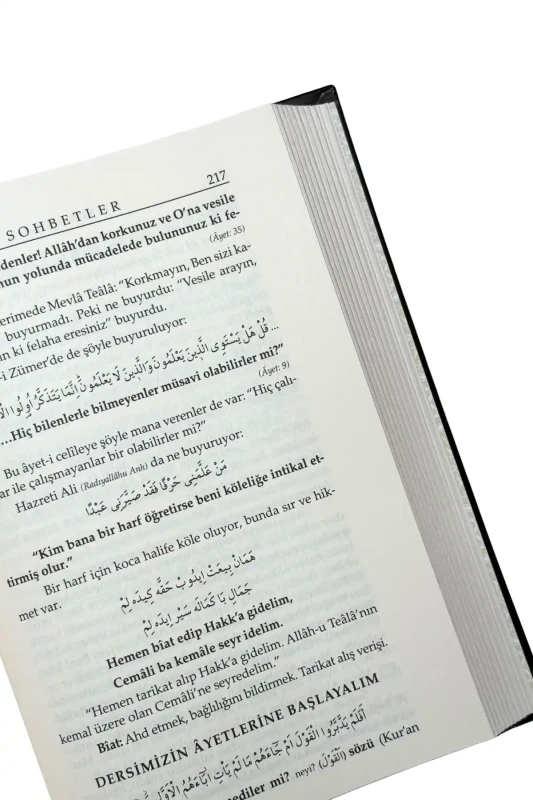 217
SOHBETLER
denler! Allâh'dan korkunuz ve O'na vesile
nun yolunda mücadelede bulununuz ki fe-
(Âyet: 35)
erimede Mevlâ Teâlâ: "Korkmayın, Ben sizi ka-
buyurmadı. Peki ne buyurdu: "Vesile arayın,
n ki felaha eresiniz" buyurdu.
-i Zümer'de de şöyle buyuruluyor:
... قُلْ هَلْ يَسْتَوِي الَّذِينَ يَعْلَمُونَ وَالَّذِينَ لَا يَعْلَمُونَ إِنَّمَا يَتَذَكَّرُ أُولُوا
...Hiç bilenlerle bilmeyenler müsavi olabilirler mi?"
(Âyet: 9)
Bu âyet-i celîleye şöyle mana verenler de var: "Hiç çalı-
ar ile çalışmayanlar bir olabilirler mi?"
Hazreti Ali (Radıyallâhu Anh) da ne buyuruyor:
مَنْ عَلَّمَنِي حَرْفًا فَقَدْ صَيَّرَنِي عَبْدًا
"Kim bana bir harf öğretirse beni köleliğe intikal et-
tirmiş olur."
Bir harf için koca halife köle oluyor, bunda sır ve hik-
met var.
هَمَانْ بِيعَتْ اِيدُوبْ حَقَّه كِيدَه لِمْ
جَمَالِ بَا كَمَالَه سَيْر اِيدَه لِمْ
Hemen biat edip Hakk'a gidelim,
Cemâli ba kemâle seyr idelim.
"Hemen tarikat alıp Hakk'a gidelim. Allâh-u Teâlâ'nın
kemal üzere olan Cemâli'ne seyredelim."
Bîat: Ahd etmek, bağlılığını bildirmek. Tarikat alış verişi.
DERSİMİZİN ÂYETLERİNE BAŞLAYALIM
أَفَلَمْ يَدَّبَّرُوا الْقَوْلَ أَمْ جَاءَهُمْ مَا لَمْ يَأْتِ آبَاءَهُمُ الْأَوَّلِينَ
ediler mi? neyi? (اَلْقَوْلَ) sözü (Kur'an